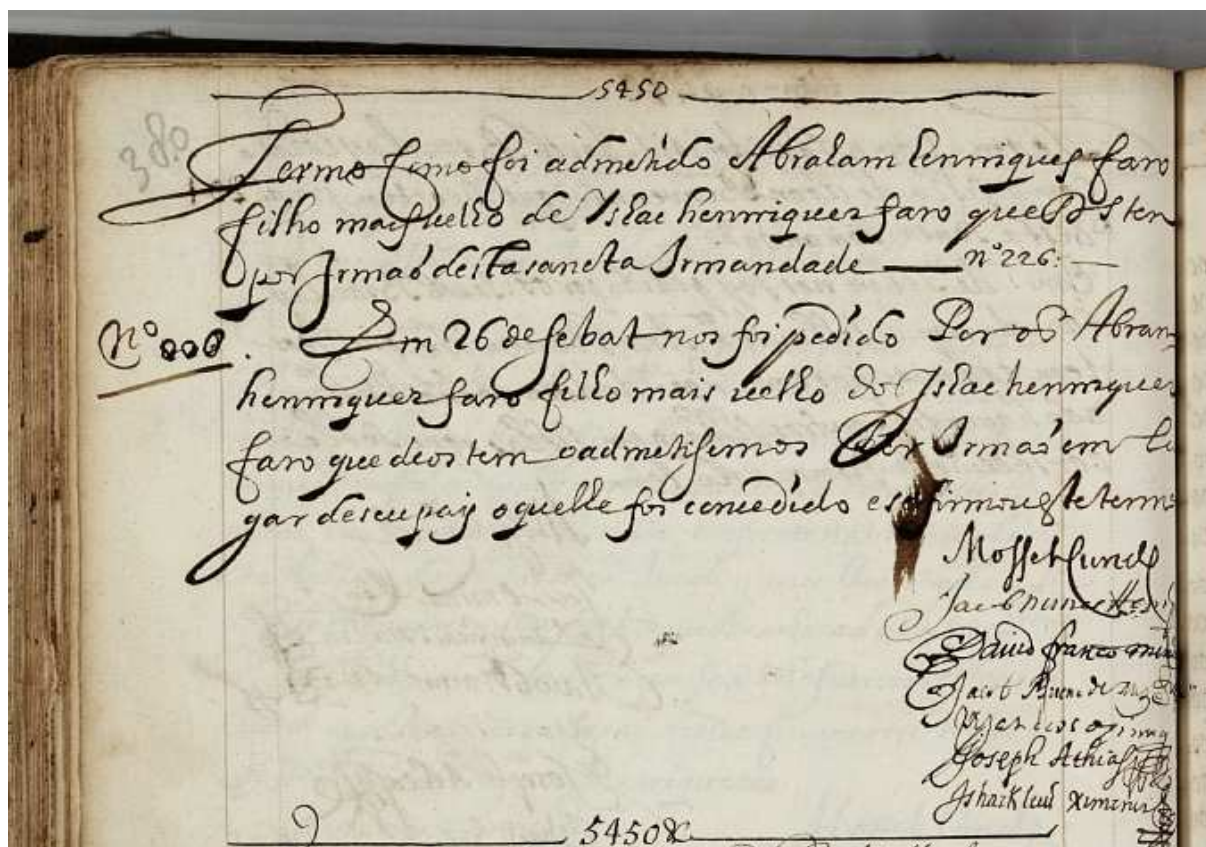 5450
380
Termo Como foi admetido Abraham henriques faro
filho mais uelho de Ishac henrriques faro que Ds tem
por Irmaõ desta sancta Irmandade — nº 226. —
Nº
Em 26 de sebat nos foi pedido Por oõ Abram
henrriques faro filho mais uelho do Ishac henrriques
faro que deos tem o admetisemos Por Irmaõ em lu
gar de seu pay o quelhe foi concedido e se firmou este termo
Mosseh
Jacob nunes
Dauid franco
Jacob Bueno de
Joseph Athias
Ishack leui ximenes
5450